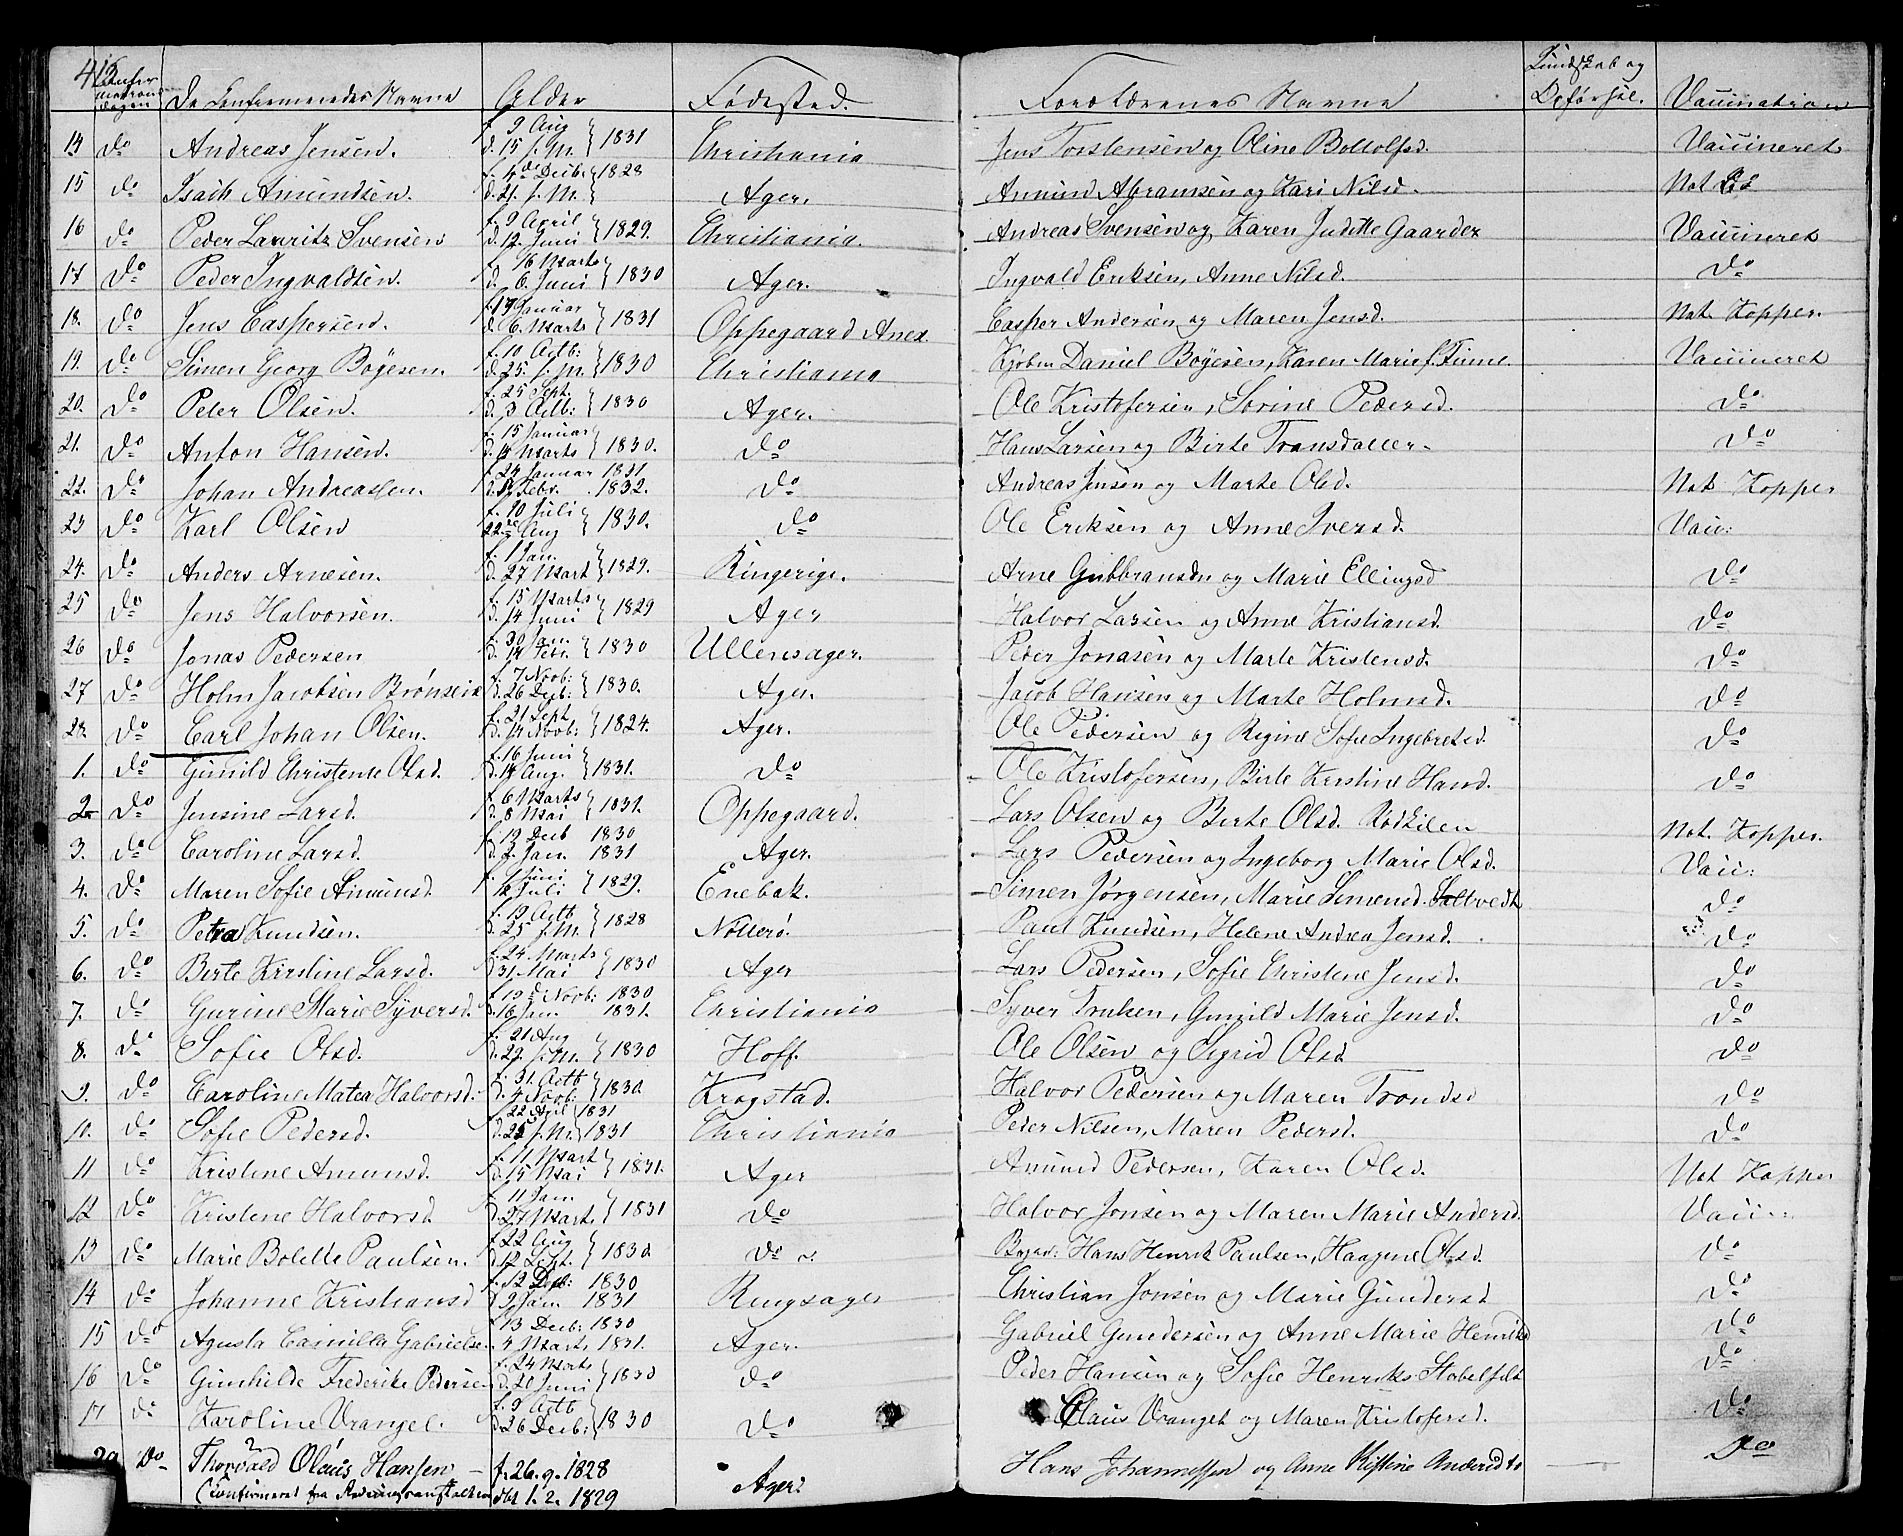 Confirmations dagen De Confirmeredes Navne Alder Fødested. Forældrenes Navne Kundskab og Opførsel. Vaccination
14 do Andreas Jensen. f. 9 Aug d. 15 s. M. } 1831 Christiania Jens Torstensen og Oline Bottolfsd. Vaccineret
15 do Isach Amundsen. f. 4de Decb. d. 21. s. M. } 1828 Ager. Amund Abramsen og Kari Nilsd. Nat.
16 do Peder Lauritz Svensen f. 9 April d. 12. Juni } 1829. Christiania. Andreas Svensen og Karen Judithe Gaarder Vaccineret
17 do Peder Ingvaldsen. f. 16 Marts d. 6. Juni } 1830 Ager. Ingvald Eriksen, Anne Nilsd. do
18. do Jens Caspersen. f. 19 Januar d. 6. Marts } 1831 Oppegaard Anex Casper Andersen og Maren Jensd. Nat. Kopper.
19. do Simen Georg Bøyesen. f. 10 Octb: d. 25. s. M. } 1830 Christiania Kjøbm Daniel Boyesen, Karen Marie f. Finne. Vaccineret
20. do Peter Olsen. f. 25 Sept. d. 3 Octb: } 1830 Ager. Ole Kristofersen, Sorine Pedersd. do
21. do Anton Hansen. f. 15 Januar d. 14 Marts } 1830. do Hans Larsen og Birte Transdatter do
22. do Johan Andreassen. f. 24 Januar 1831 Febr. 1832. do Andreas Jensen og Marte Olsd. Nat. Kopper
23 do Karl Olsen f. 10 Juli 22de Aug } 1830. do Ole Eriksen og Anne Iversd. Vacc:
24. do Anders Arnesen. f. 1 Jan. d. 27 Mart } 1829. Ringerige. Arne Gulbbransen og Marie Ellingsd do
25 do Jens Halvorsen. f. 15 Marts d. 14 Juni } 1829 Ager Halvor Larsen og Anne Kristiansd. do
26 do Jonas Pedersen f. 30 Jan. d. 14 Febr. } 1830 Ullensager. Peder Jonasen og Marte Kristensd. do
27 do Holm Jacobsen f. 7 Novb: d. 26 Decb: } 1830. Ager. Jacob Hansen og Marte Holmsd. do
28. do Carl Johan Olsen. f. 21 Sept d. 14 Novb: } 1824. Ager. Ole Pedersen og Regine Sofie Ingebretsd. do
1. do Gunild Christense Olsd. f. 16 Juni d. 14 Aug. } 1831. do Ole Kristofersen, Birte Kirstine Hansd. do
2 do Jensine Larsd. f. 6 Marts d. 8 Mai } 1831. Oppegaard. Lars Olsen og Birte Olsd. Rødkilen Nat. Kopper.
3. do Caroline Larsd. f. 19 Decb 1830 d. 2. Jan. 1831 Ager. Lars Pedersen og Ingeborg Marie Olsd. Vacc:
4. do Maren Sofie Amunsd. f. 1 Juni Juli } 1829. Enebak. Simen Jørgensen, Marie Simensd. do
5. do Petra Knudsen. f. 19 Octb d. 25 s. M. } 1828 Nøtterø. Paul Knudsen, Helene Andrea Jensd. do
6. do Birte Kirstine Larsd. f. 24. Marts d. 31. Mai } 1830 Ager Lars Pedersen, Sofie Christene Jensd. do
7. do Gurine Marie Syversd. f. 19de Novb: 1830 d. 16 Jan. 1831. Christiania Syver Trulsen, Gunild Marie Jensd. do
8. do Sofie Olsd. f. 21 Aug d. 22. s. M. } 1830 Hoff. Ole Olsen og Sigrid Olsd do
9. do Caroline Matea Halvorsd. f. 31. Octb d. 4 Novb: } 1830. Krogstad. Halvor Pedersen og Maren Trondsd do
10. do Sofie Pedersd. f. 22 April 1831 d. 25 s. M. 1831 Christiania Peder Nilsen, Maren Pedersd. do
11 do Kristine Amunsd. f. 11 Mart d. 15 Mai } 1831. Ager Amund Pedersen, Karen Olsd. Nat Kopper
12 do Kristene Halvorsd. f. 11 Jan d. 27 Marts } 1831 do Halvor Jonsen og Maren Marie Andersd. Vacc:
13 do Marie Bolette Paulsen. f. 22 Aug d. 12 Sept. } 1830. do Hans Henrik Paulsen, Haagine Olsd. do
14 do Johanne Kristiansd f. 12 Decb: 1830 d. 9 Jan 1831 Ringsager Christian Jonsen og Marie Gundersd do
15 do Agusta Camilla Gabrielsen f. 13 Decb: 1830 4 Marts 1831. Ager. Gabriel Gundersen og Anne Marie Henriks do
16 do Gunhilde Frederike Pedersen f. 24 Marts d. 20 Juni } 1830 do Peder Hansen og Sofie Henriks Stabelfelt do
17 do Karoline Vrangel. f. 9 Octb d. 26 Decb: } 1830 do Claus Vrangel og Maren Kristofersd. do
29 Do Thorvald Olaus Hansen f. 26. 9. 1828 Hans Johannessen og Anne Kistine Andersd tr Do
(Confirmeret fra dbt 1. 2. 1829 Ager.